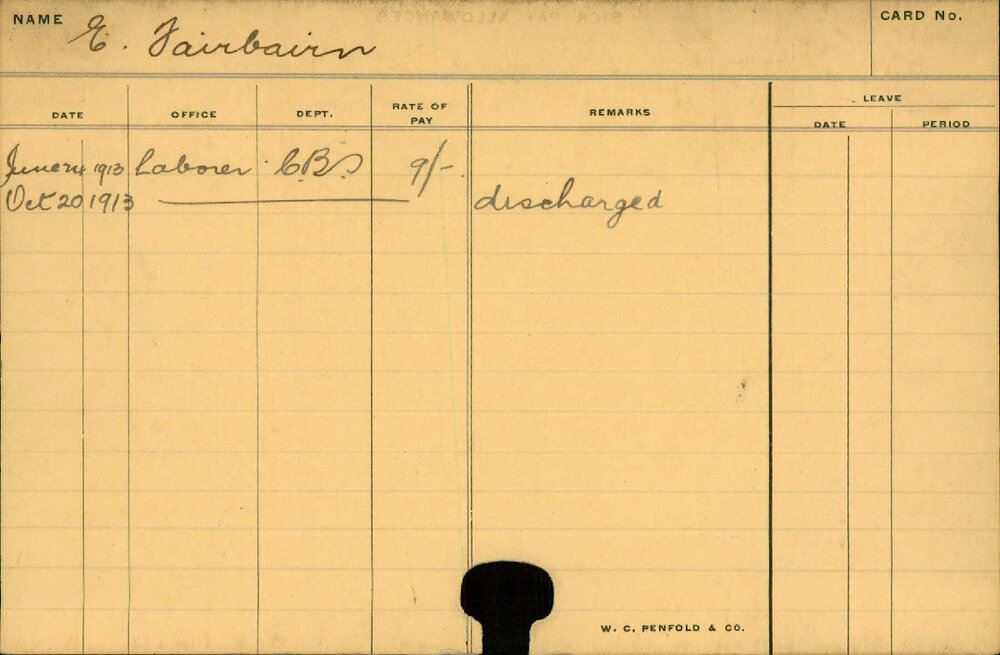 NAME E. Fairbairn CARD No.
DATE OFFICE DEPT. RATE OF PAY REMARKS LEAVE
DATE PERIOD
June 1913 Laborer 9/-
Oct 20 1913 discharged
W. C. PENFOLD & CO.